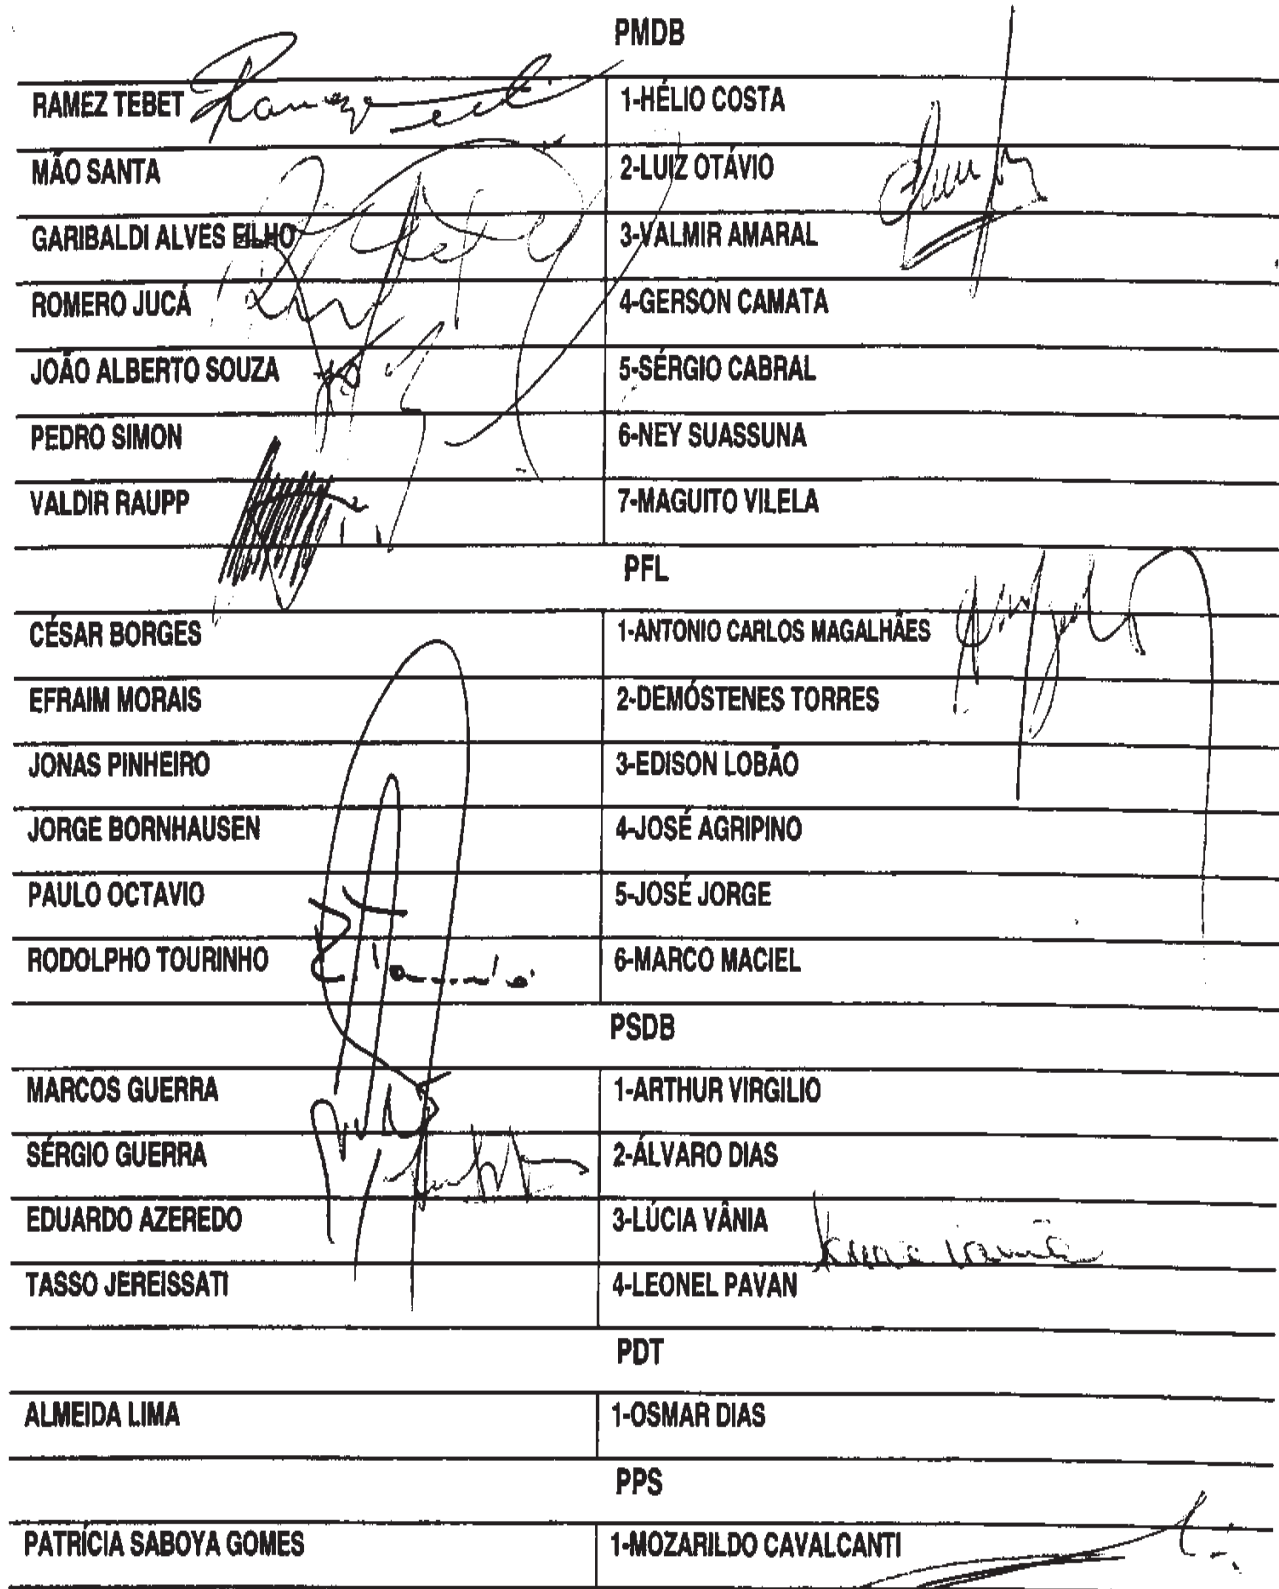 PMDB
RAMEZ TEBET Ramez Tebet 1-HÉLIO COSTA
MÃO SANTA 2-LUIZ OTÁVIO
GARIBALDI ALVES FILHO 3-VALMIR AMARAL
ROMERO JUCÁ 4-GERSON CAMATA
JOÃO ALBERTO SOUZA 5-SÉRGIO CABRAL
PEDRO SIMON 6-NEY SUASSUNA
VALDIR RAUPP 7-MAGUITO VILELA
PFL
CÉSAR BORGES 1-ANTONIO CARLOS MAGALHÃES
EFRAIM MORAIS 2-DEMÓSTENES TORRES
JONAS PINHEIRO 3-EDISON LOBÃO
JORGE BORNHAUSEN 4-JOSÉ AGRIPINO
PAULO OCTAVIO 5-JOSÉ JORGE
RODOLPHO TOURINHO 6-MARCO MACIEL
PSDB
MARCOS GUERRA 1-ARTHUR VIRGILIO
SÉRGIO GUERRA 2-ÁLVARO DIAS
EDUARDO AZEREDO 3-LÚCIA VÂNIA
TASSO JEREISSATI 4-LEONEL PAVAN
PDT
ALMEIDA LIMA 1-OSMAR DIAS
PPS
PATRÍCIA SABOYA GOMES 1-MOZARILDO CAVALCANTI